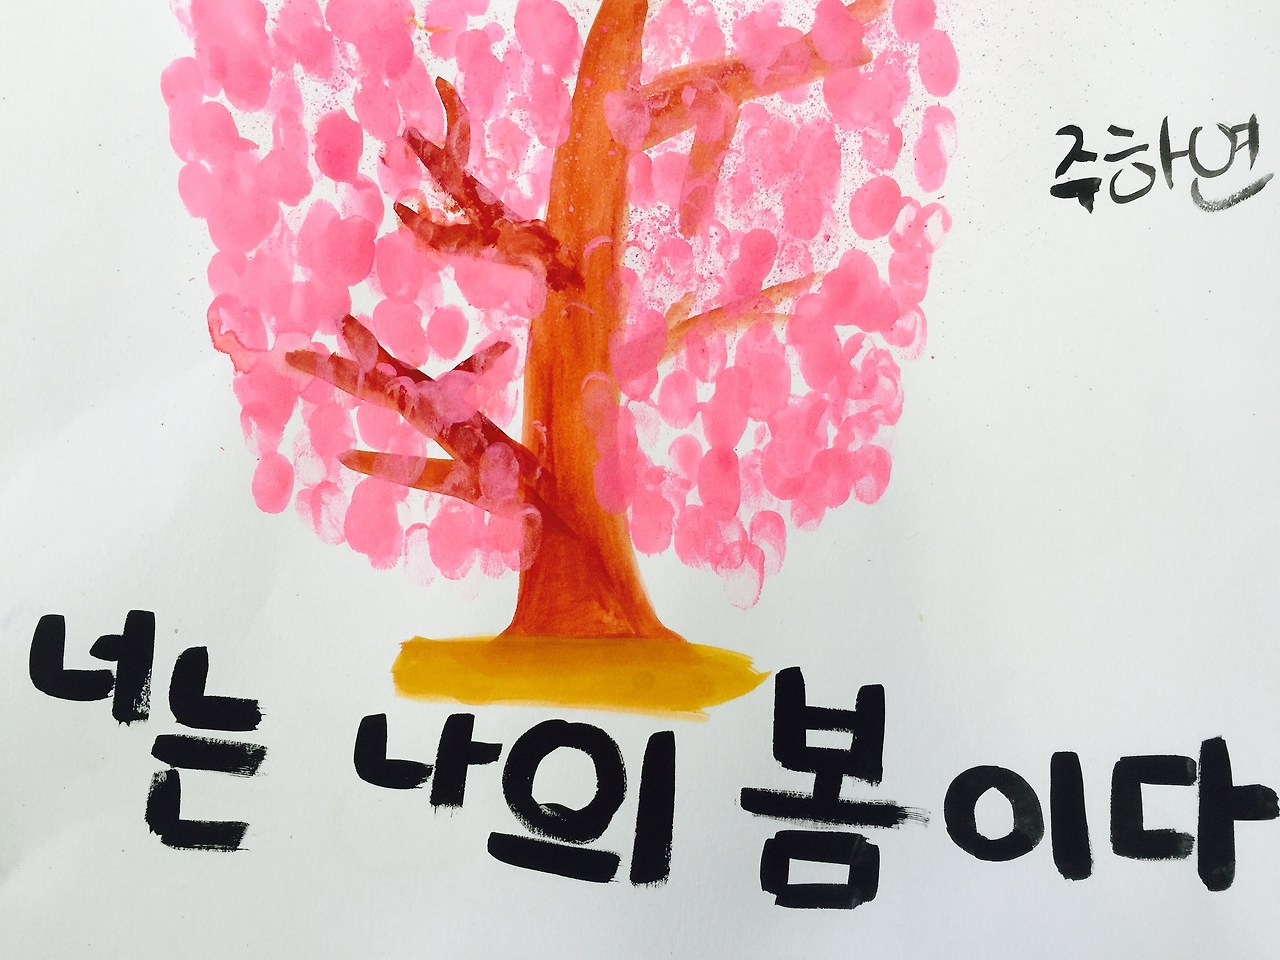 주하연
너는 나의 봄이다